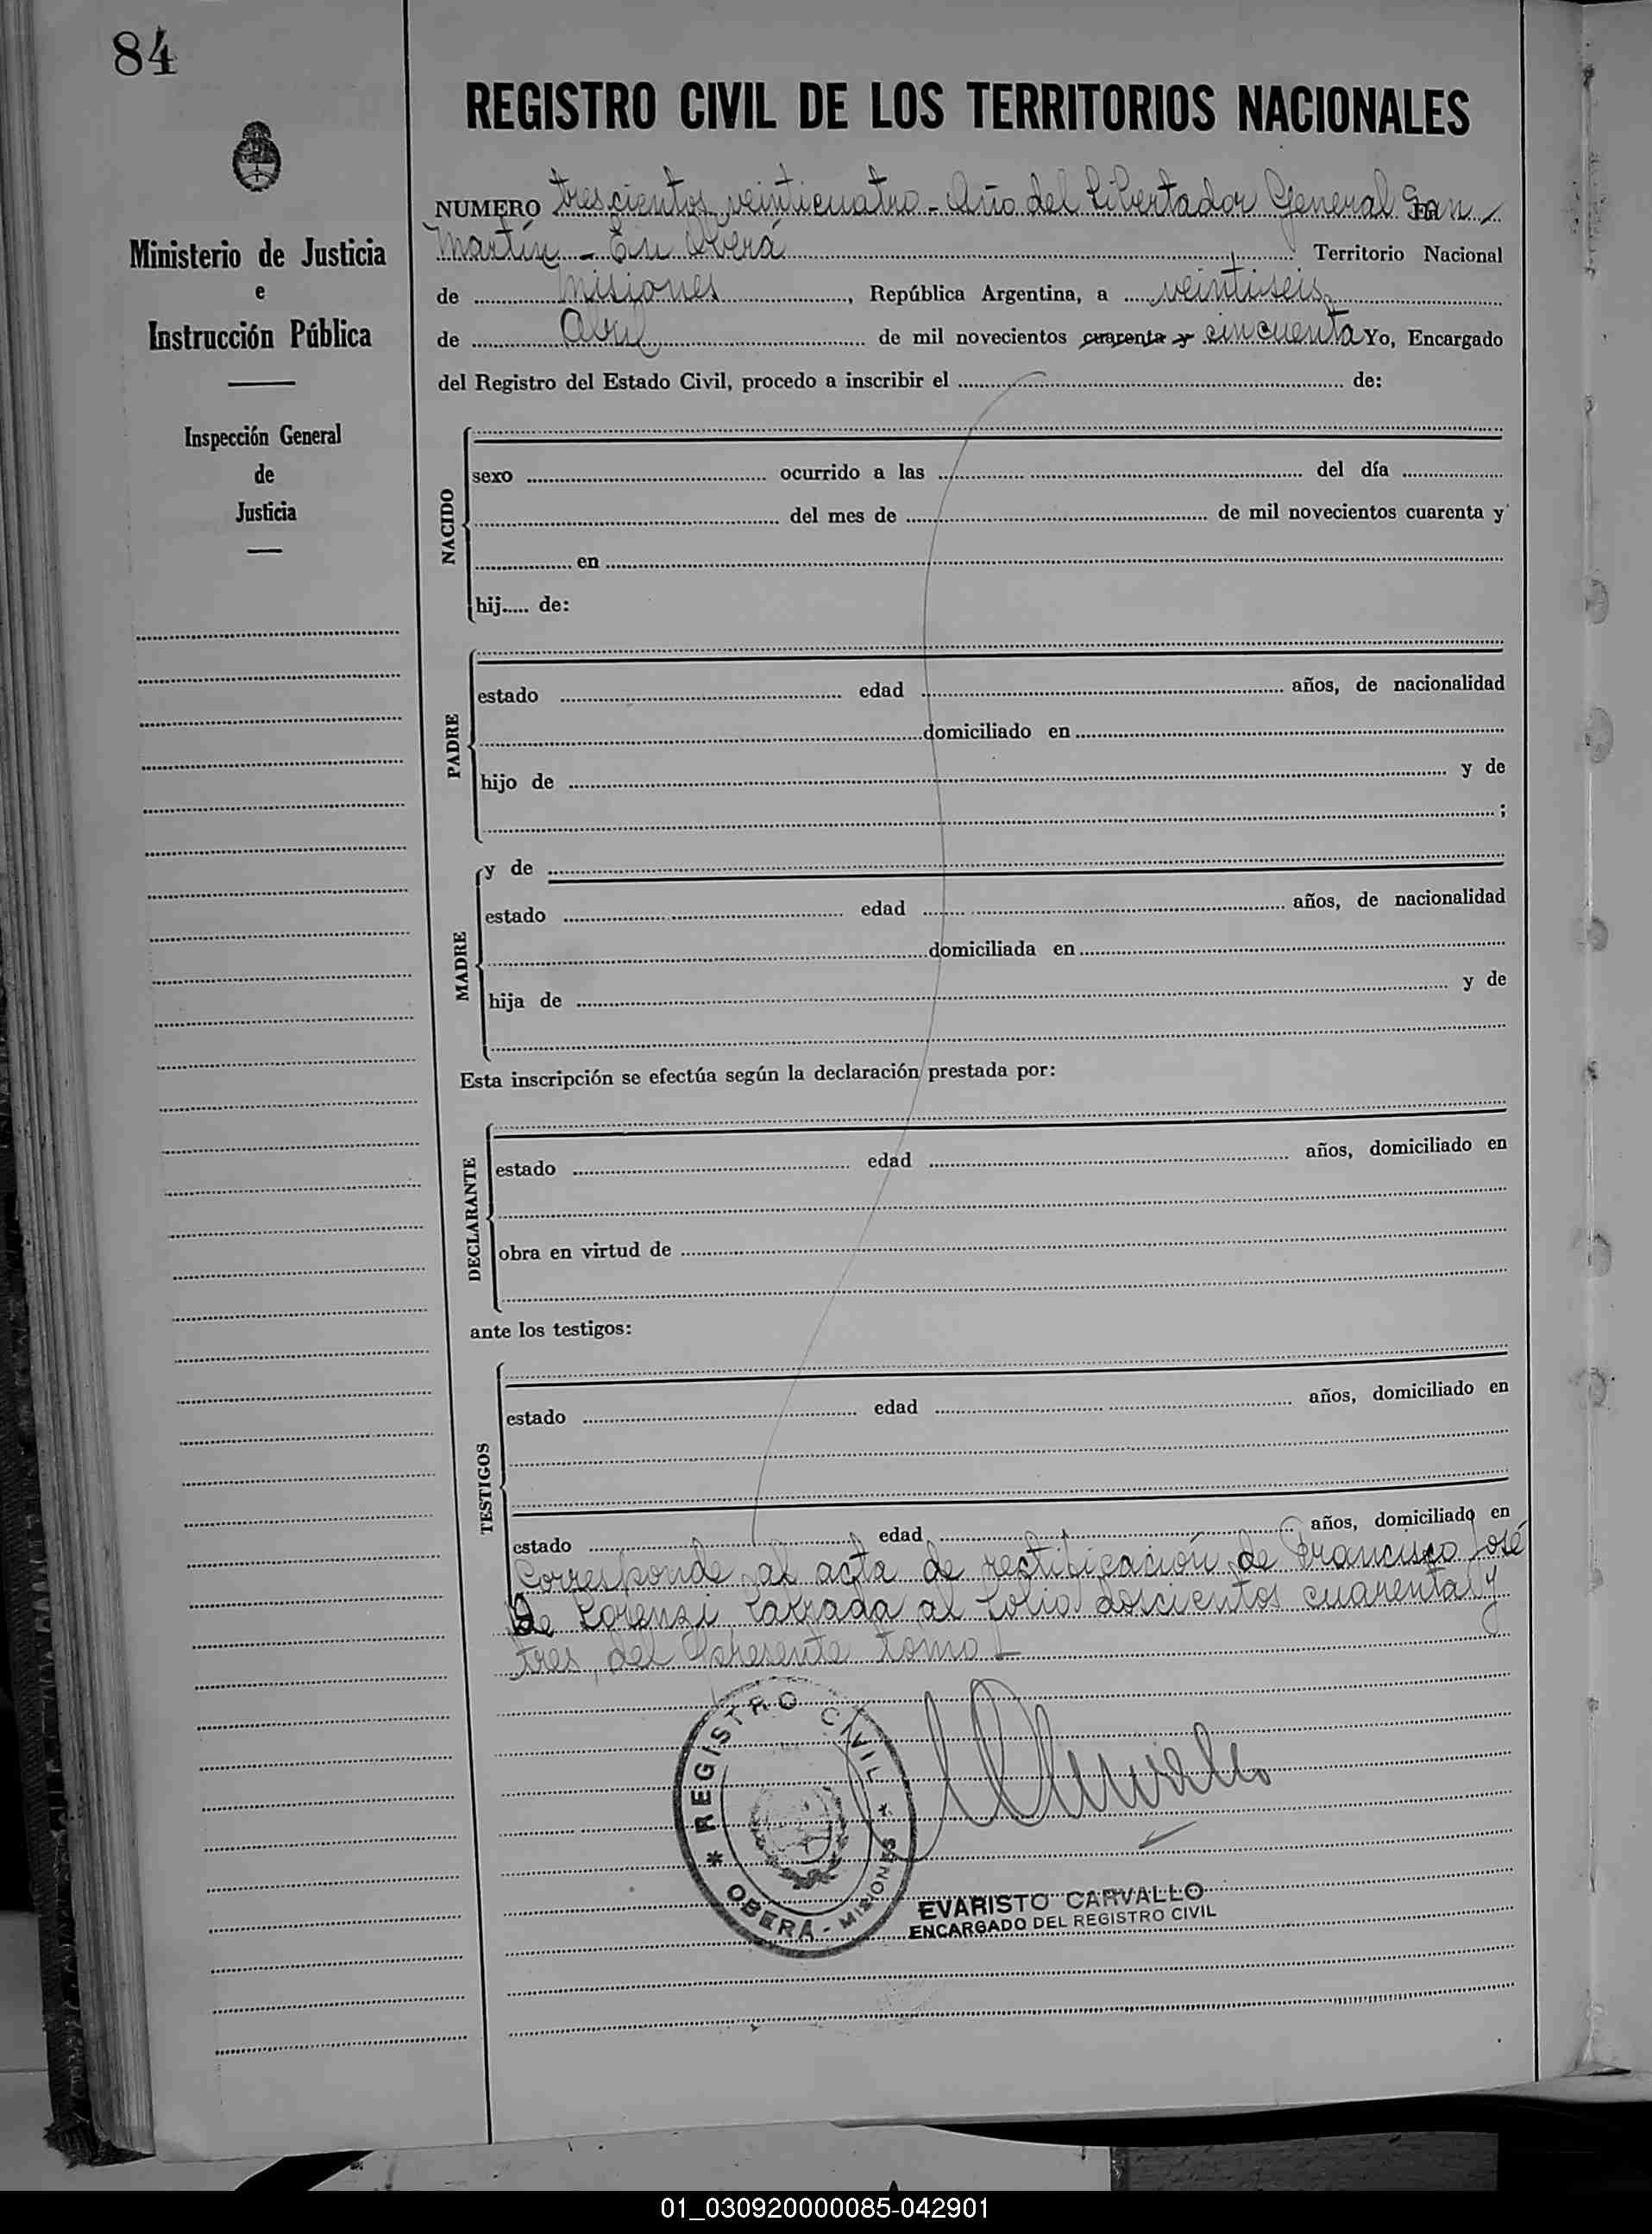 84
REGISTRO CIVIL DE LOS TERRITORIOS NACIONALES
Ministerio de Justicia
e
Instrucción Pública
Inspección General
de
Justicia
NUMERO trescientos veinticuatro - Año del Libertador General San
Martín - En Oberá Territorio Nacional
de Misiones, República Argentina, a veintiseis
de Abril de mil novecientos cuarenta y cincuenta Yo, Encargado
del Registro del Estado Civil, procedo a inscribir el de:
NACIDO
sexo ocurrido a las del día
del mes de de mil novecientos cuarenta y
en
hij..... de:
PADRE
estado edad años, de nacionalidad
domiciliado en
hijo de y de
;
MADRE
y de
estado edad años, de nacionalidad
domiciliada en
hija de y de
Esta inscripción se efectúa según la declaración prestada por:
DECLARANTE
estado edad años, domiciliado en
obra en virtud de
ante los testigos:
TESTIGOS
estado edad años, domiciliado en
estado edad años, domiciliado en
Corresponde al acta de rectificación de Francisco José
De Lorenzi labrada al folio doscientos cuarenta y
tres del presente tomo -
* REGISTRO CIVIL *
OBERÁ - MISIONES
EVARISTO CARVALLO
ENCARGADO DEL REGISTRO CIVIL
01_030920000085-042901